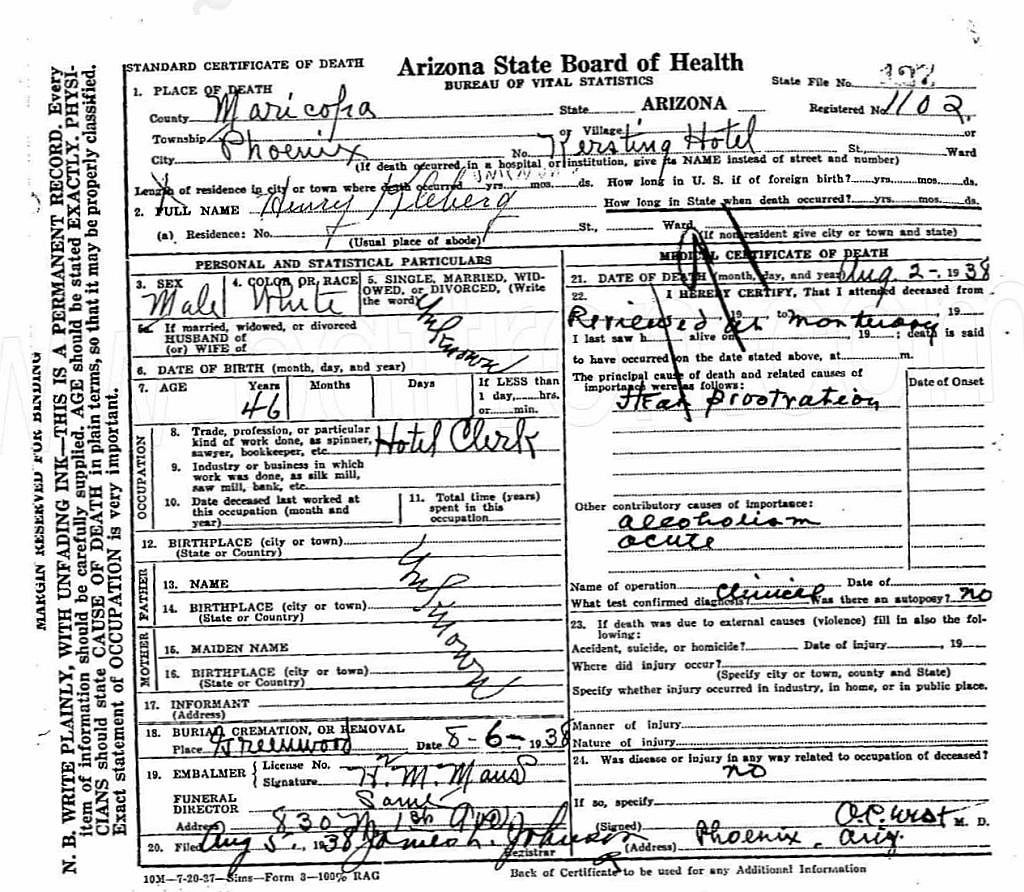 STANDARD CERTIFICATE OF DEATH
Arizona State Board of Health
BUREAU OF VITAL STATISTICS
State File No.
1. PLACE OF DEATH
County Maricopa State ARIZONA Registered No. 1102
Township or Village or
City Phoenix No. Kersting Hotel St., Ward
(If death occurred in a hospital or institution, give its NAME instead of street and number)
Length of residence in city or town where death occurred yrs. mos. ds. How long in U. S. if of foreign birth? yrs. mos. ds.
2. FULL NAME Henry Kleberg How long in State when death occurred? yrs. mos. ds.
(a) Residence: No. St., Ward
(Usual place of abode) (If nonresident give city or town and state)
PERSONAL AND STATISTICAL PARTICULARS
3. SEX Male
4. COLOR OR RACE White
5. SINGLE, MARRIED, WIDOWED, or DIVORCED, (Write the word) Unknown
5a. If married, widowed, or divorced
HUSBAND of
(or) WIFE of
6. DATE OF BIRTH (month, day, and year)
7. AGE Years 46 Months Days If LESS than
1 day, hrs.
or min.
OCCUPATION
8. Trade, profession, or particular
kind of work done, as spinner,
sawyer, bookkeeper, etc. Hotel Clerk
9. Industry or business in which
work was done, as silk mill,
saw mill, bank, etc.
10. Date deceased last worked at
this occupation (month and
year)
11. Total time (years)
spent in this
occupation
12. BIRTHPLACE (city or town)
(State or Country)
FATHER
13. NAME
14. BIRTHPLACE (city or town)
(State or Country)
Unknown
MOTHER
15. MAIDEN NAME
16. BIRTHPLACE (city or town)
(State or Country)
17. INFORMANT
(Address)
18. BURIAL, CREMATION, OR REMOVAL
Place Greenwood Date 8-6-, 1938
19. EMBALMER License No.
Signature H. M. Maus
FUNERAL
DIRECTOR Same
Address 830 N 1st Ave
20. Filed Aug 5, 1938 James L. Johnson
Registrar
MEDICAL CERTIFICATE OF DEATH
21. DATE OF DEATH (month, day, and year) Aug 2-, 1938
22. I HEREBY CERTIFY, That I attended deceased from
19 to 19
Reviewed at Mortuary
I last saw h alive on , 19 ; death is said
to have occurred on the date stated above, at m.
The principal cause of death and related causes of
importance were as follows: Date of Onset
Heat prostration
Other contributory causes of importance:
alcoholism
acute
Name of operation Date of
What test confirmed diagnosis? Clinical Was there an autopsy? no
23. If death was due to external causes (violence) fill in also the following:
Accident, suicide, or homicide? Date of injury , 19
Where did injury occur?
(Specify city or town, county and State)
Specify whether injury occurred in industry, in home, or in public place.
Manner of injury
Nature of injury
24. Was disease or injury in any way related to occupation of deceased?
no
If so, specify
(Signed) M. D.
(Address) Phoenix, Ariz.
10M-7-20-37-Sims-Form 3-100% RAG
Back of Certificate to be used for any Additional Information
MARGIN RESERVED FOR BINDING
N. B. WRITE PLAINLY, WITH UNFADING INK—THIS IS A PERMANENT RECORD. Every
item of information should be carefully supplied. AGE should be stated EXACTLY. PHYSI-
CIANS should state CAUSE OF DEATH in plain terms, so that it may be properly classified.
Exact statement of OCCUPATION is very important.